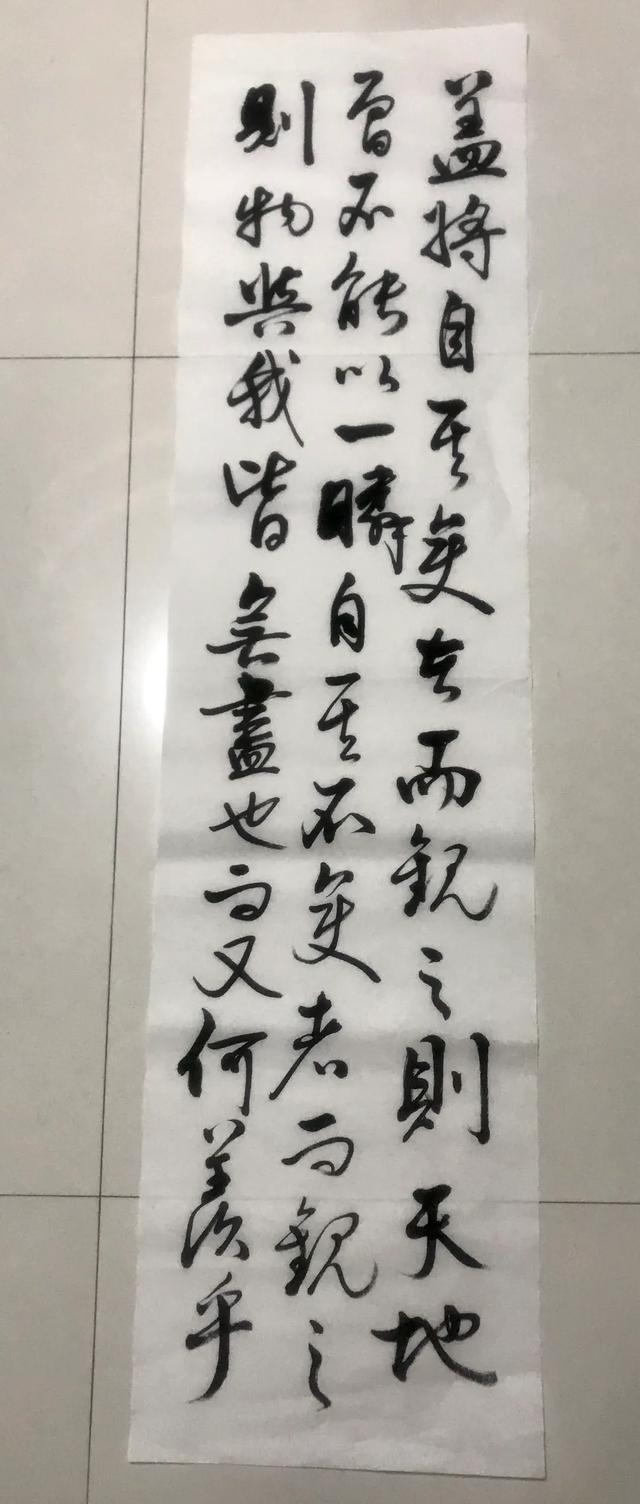 蓋將自其變者而觀之則天地
曾不能以一瞬自其不變者而觀之
則物與我皆無盡也而又何羨乎